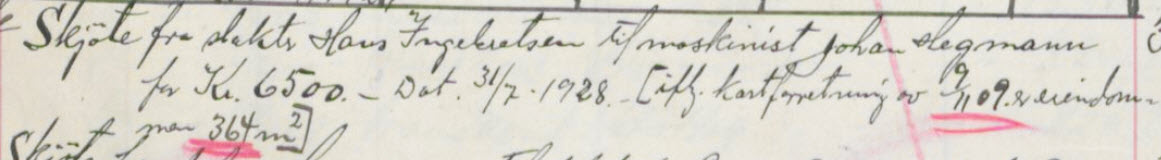 Skjöte fra slakter Hans Ingebretsen til maskinist Johan Hegmann
for Kr. 6500.- Dat. 31/7-1928.- [ifl. kartforretning av 9/11 09. er eiendom-
men 364 m²]
Skjöte fra